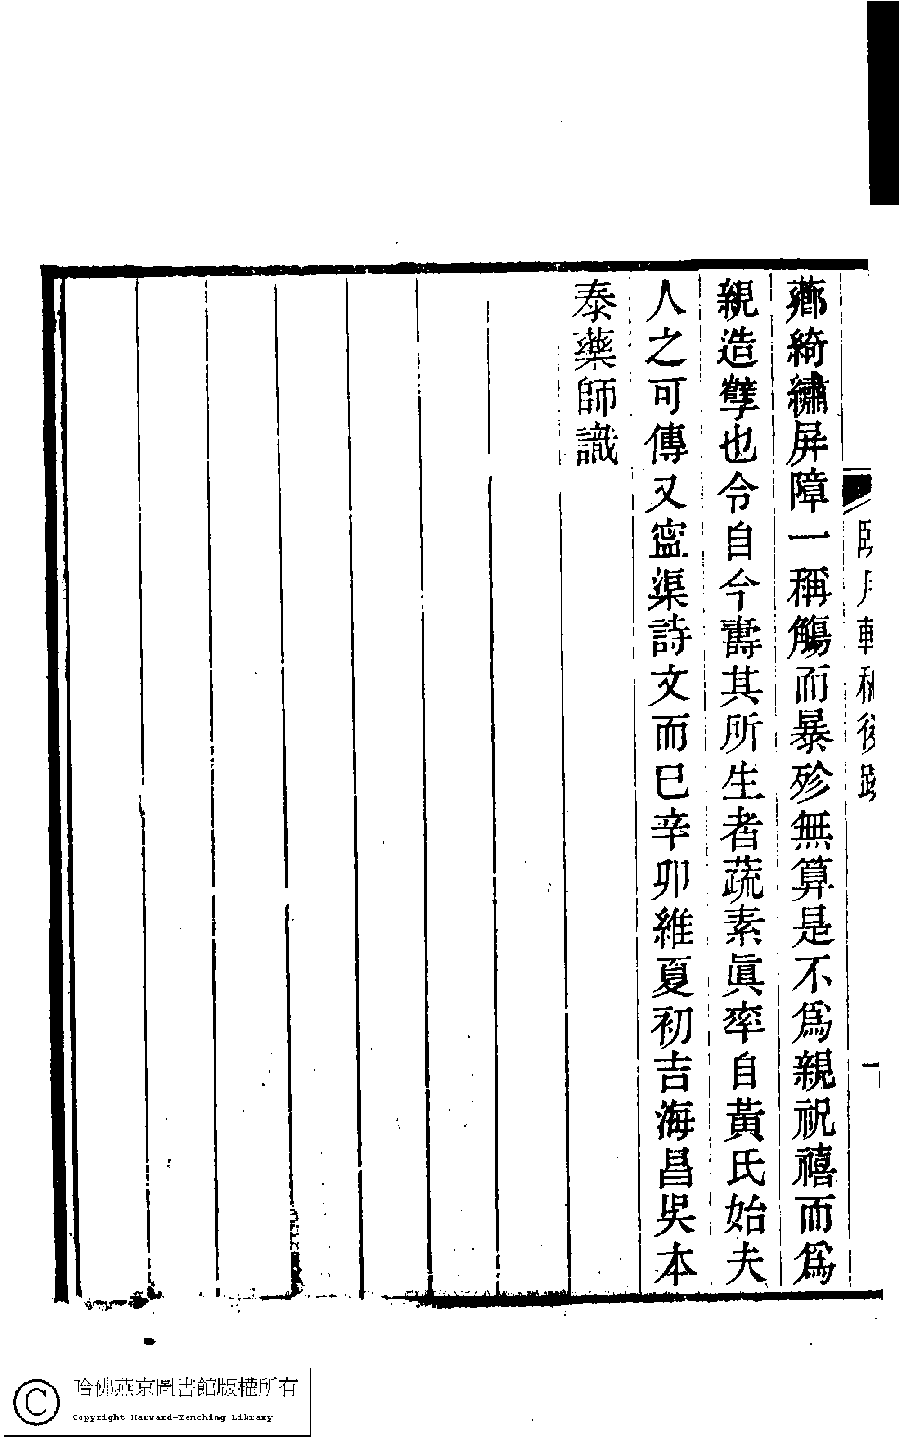 薌綺繡屏障一稱觴而暴殄無算是不爲親祝禧而爲
親造孽也令自今壽其所生者蔬素眞率自黃氏始夫
人之可傳又寍渠詩文而已辛卯維夏初吉海昌吳本
泰藥師識
臥月軒稿後跋
一
哈佛燕京圖書館版權所有
Copyright Harvard-Yenching Library